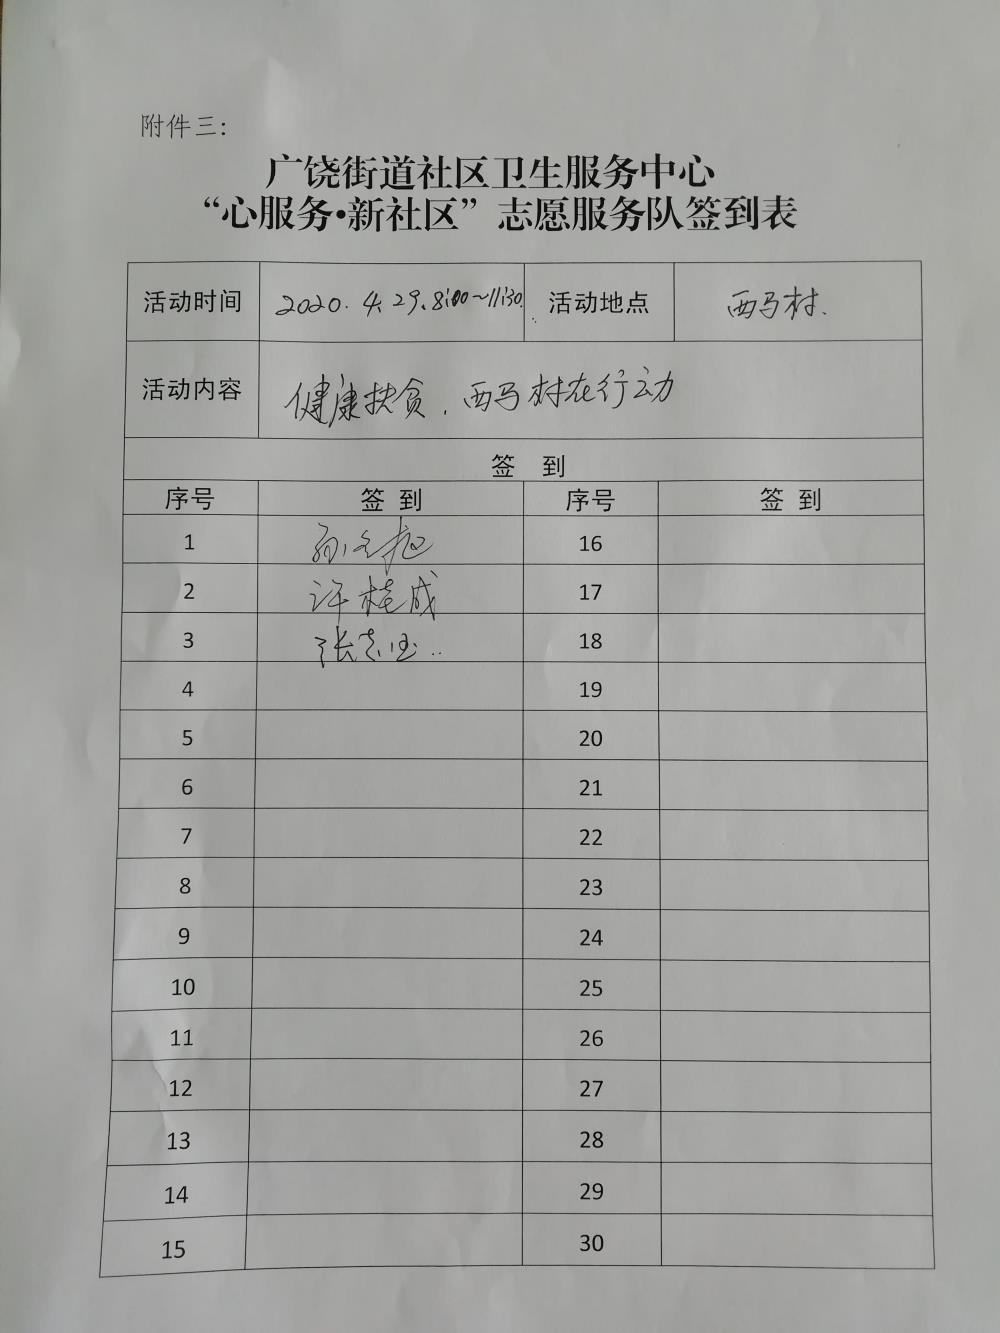 附件三：
广饶街道社区卫生服务中心
“心服务•新社区”志愿服务队签到表
活动时间 2020.4.29.8:00～11:30. 活动地点 西马村.
活动内容 健康扶贫.西马村在行动
签 到
序号 签到 序号 签到
1 16
2 许桂成 17
3 张志 18
4 19
5 20
6 21
7 22
8 23
9 24
10 25
11 26
12 27
13 28
14 29
15 30